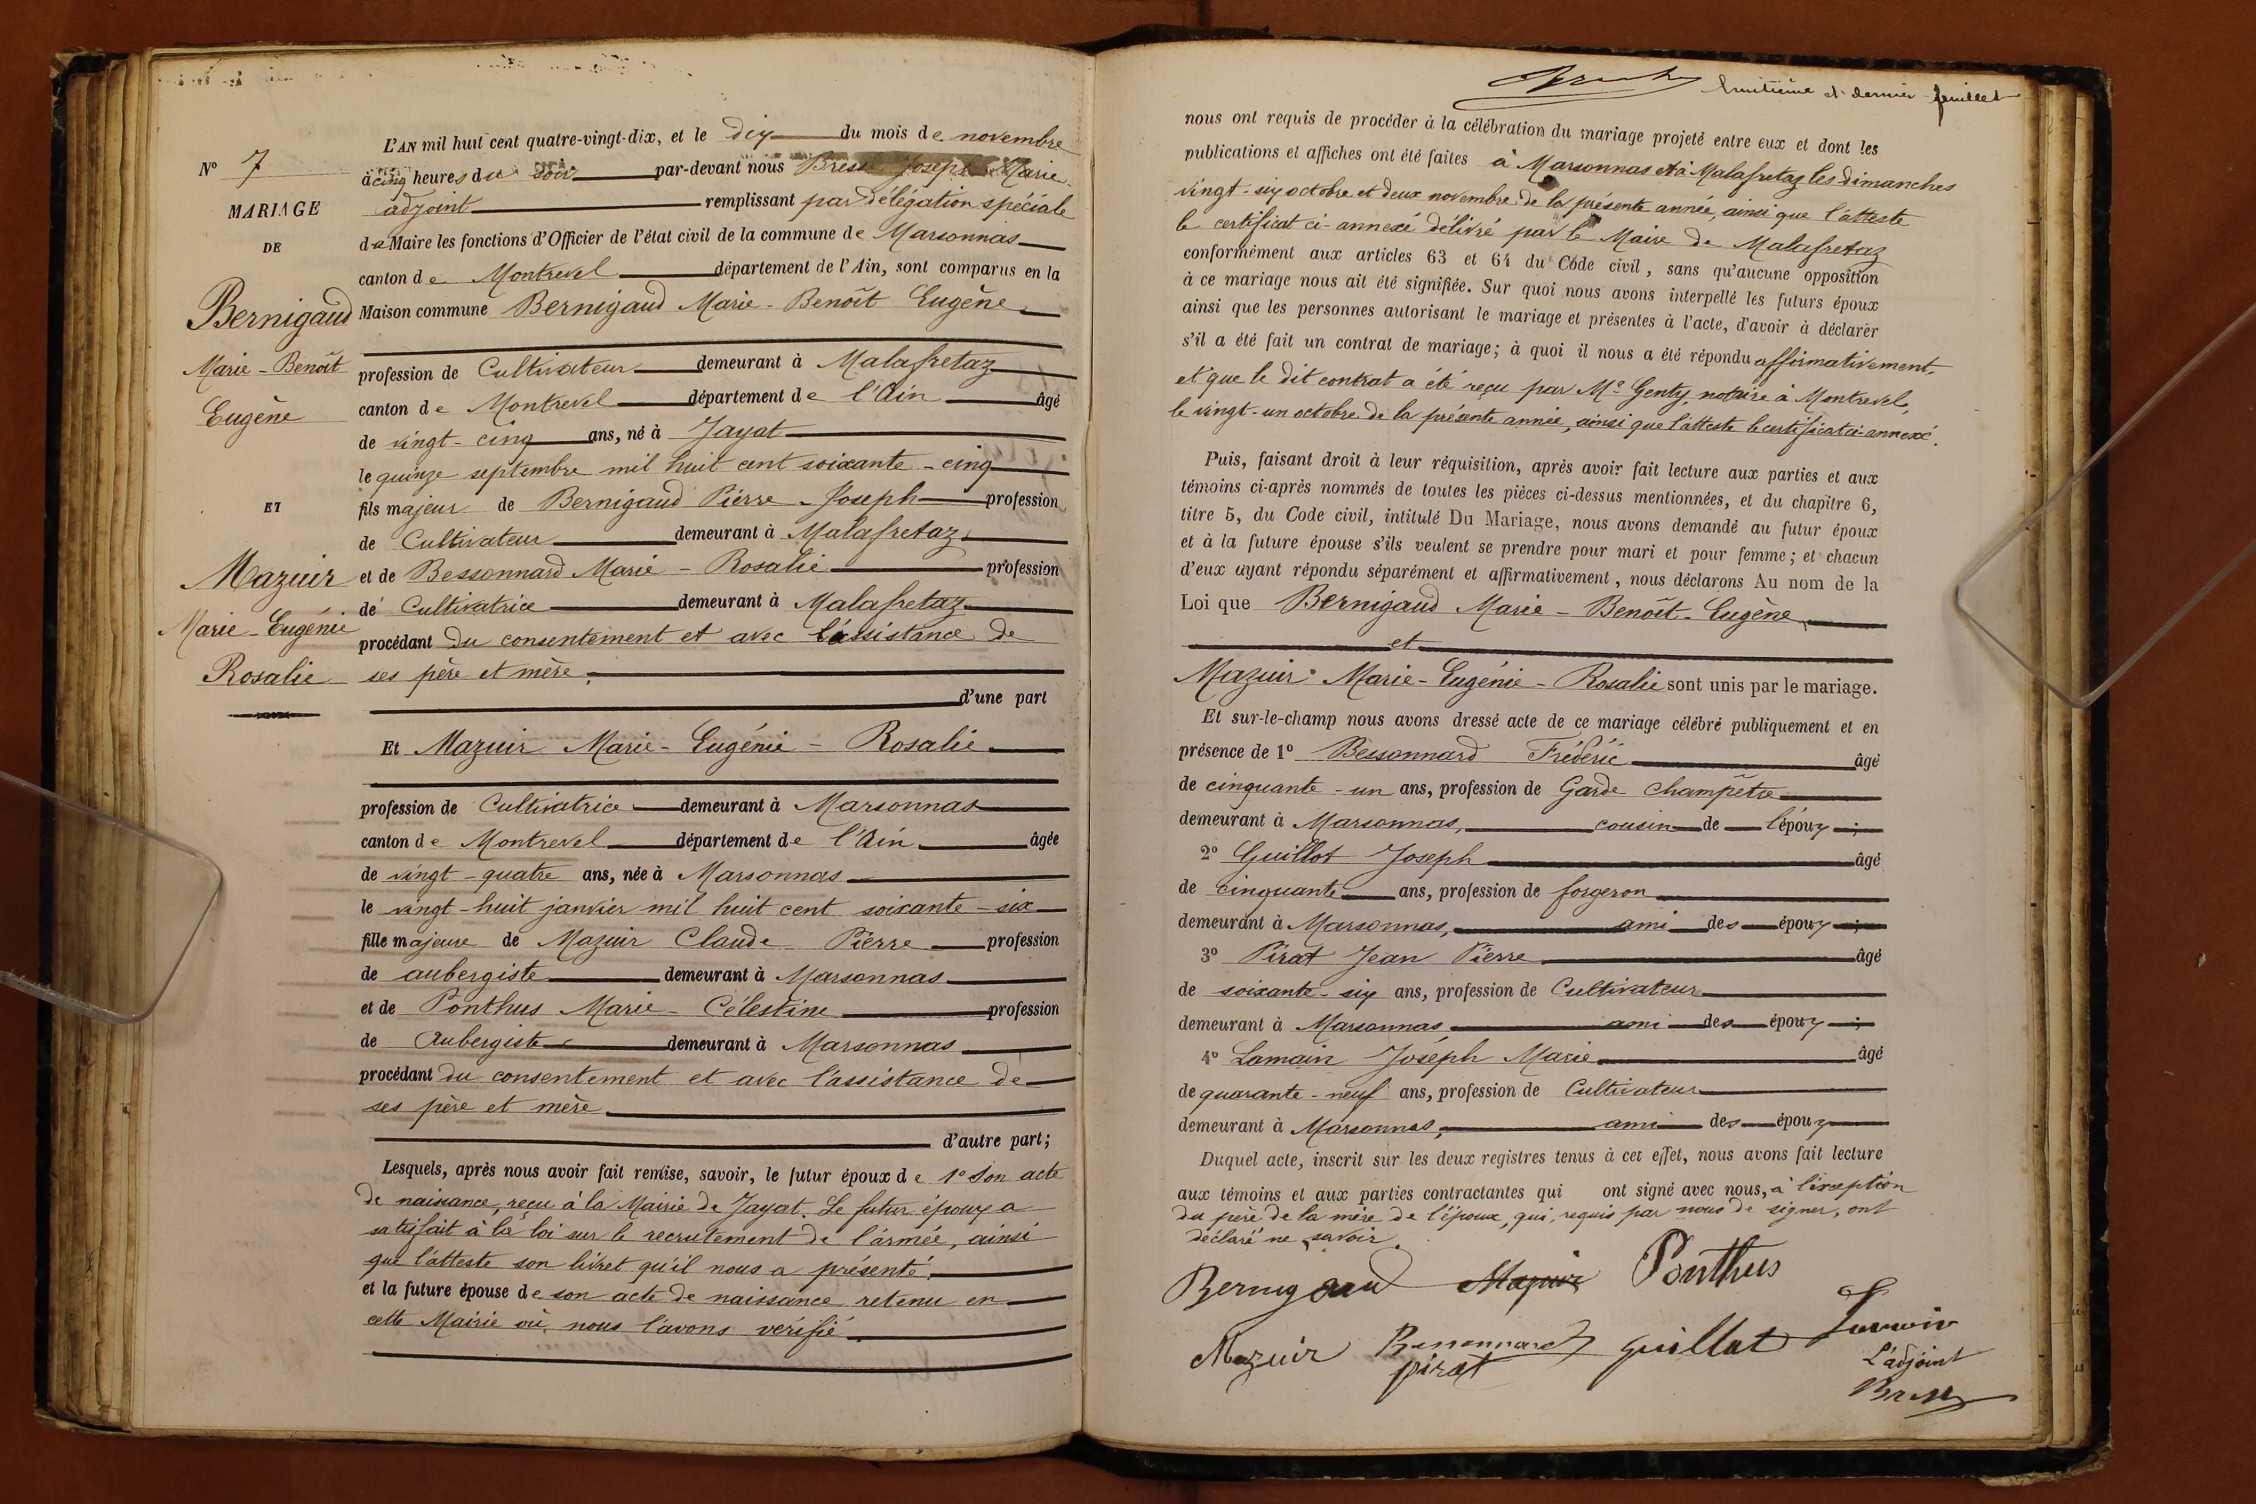 L'AN mil huit cent quatre-vingt-dix, et le dix du mois de novembre
N° 7
à cinq heures du soir par-devant nous Bress Joseph Marie
MARIAGE
adjoint remplissant par délégation spéciale
DE
de Maire les fonctions d'Officier de l'état civil de la commune de Marsonnas
canton de Montrevel département de l'Ain, sont comparus en la
Bernigaud
Maison commune Bernigaud Marie-Benoît Eugène
Marie-Benoît
profession de Cultivateur demeurant à Malafretaz
canton de Montrevel département de l'Ain âgé
Eugène
de vingt-cinq ans, né à Jayat
le quinze septembre mil huit cent soixante-cinq
ET
fils majeur de Bernigaud Pierre-Joseph profession
de Cultivateur demeurant à Malafretaz
Mazuir
et de Bessonnard Marie-Rosalie profession
de Cultivatrice demeurant à Malafretaz
Marie-Eugénie
procédant du consentement et avec l'assistance de
Rosalie
ses père et mère.
d'une part
Et Mazuir Marie-Eugénie-Rosalie
profession de Cultivatrice demeurant à Marsonnas
canton de Montrevel département de l'Ain âgée
de vingt-quatre ans, née à Marsonnas
le vingt-huit janvier mil huit cent soixante-six
fille majeure de Mazuir Claude Pierre profession
de aubergiste demeurant à Marsonnas
et de Ponthus Marie-Célestine profession
de Aubergiste demeurant à Marsonnas
procédant du consentement et avec l'assistance de
ses père et mère
d'autre part;
Lesquels, après nous avoir fait remise, savoir, le futur époux de 1° Son acte
de naissance, reçu à la Mairie de Jayat. Le futur époux a
satisfait à la loi sur le recrutement de l'armée, ainsi
que l'atteste son livret qu'il nous a présenté.
et la future épouse de son acte de naissance retenu en
cette Mairie où nous l'avons vérifié.
huitième et dernier feuillet
nous ont requis de procéder à la célébration du mariage projeté entre eux et dont les
publications et affiches ont été faites à Marsonnas et à Malafretaz les dimanches
vingt-six octobre et deux novembre de la présente année, ainsi que l'atteste
le certificat ci-annexé délivré par le Maire de Malafretaz
conformément aux articles 63 et 64 du Code civil, sans qu'aucune opposition
à ce mariage nous ait été signifiée. Sur quoi nous avons interpellé les futurs époux
ainsi que les personnes autorisant le mariage et présentes à l'acte, d'avoir à déclarer
s'il a été fait un contrat de mariage; à quoi il nous a été répondu affirmativement,
et que le dit contrat a été reçu par Me Genty, notaire à Montrevel,
le vingt-un octobre de la présente année, ainsi que l'atteste le certificat ci-annexé.
Puis, faisant droit à leur réquisition, après avoir fait lecture aux parties et aux
témoins ci-après nommés de toutes les pièces ci-dessus mentionnées, et du chapitre 6,
titre 5, du Code civil, intitulé Du Mariage, nous avons demandé au futur époux
et à la future épouse s'ils veulent se prendre pour mari et pour femme; et chacun
d'eux ayant répondu séparément et affirmativement, nous déclarons Au nom de la
Loi que Bernigaud Marie-Benoît-Eugène
et
Mazuir Marie-Eugénie-Rosalie sont unis par le mariage.
Et sur-le-champ nous avons dressé acte de ce mariage célébré publiquement et en
présence de 1° Bessonnard Frédéric âgé
de cinquante-un ans, profession de Garde champêtre
demeurant à Marsonnas, cousin de l'époux;
2° Guillot Joseph âgé
de cinquante ans, profession de forgeron
demeurant à Marsonnas, ami des époux;
3° Pirat Jean Pierre âgé
de soixante-six ans, profession de Cultivateur
demeurant à Marsonnas ami des époux;
4° Lamain Joseph Marie âgé
de quarante-neuf ans, profession de Cultivateur
demeurant à Marsonnas, ami des époux
Duquel acte, inscrit sur les deux registres tenus à cet effet, nous avons fait lecture
aux témoins et aux parties contractantes qui ont signé avec nous, à l'exception
du père de la mère de l'époux, qui, requis par nous de signer, ont
déclaré ne savoir.
Bernigaud Mazuir Ponthus
Mazuir Bessonnard Guillot
pirat
L'adjoint
Bress